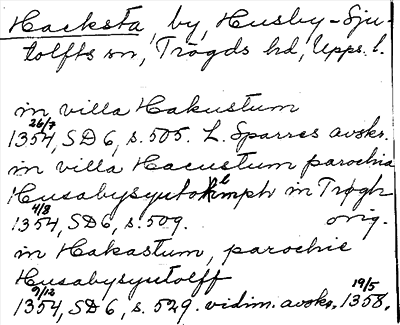 Hacksta, by, Husby-Sju-
tolfts sn, Trögds hd, Upps. l.
in villa Hakustum
26/7
1354, SD 6, s. 505. L. Sparres avskr.
in villa Hacustum parochia
in Trøgh
4/8
1354, SD 6, s. 509. orig.
in Hakastum, parochie
Husabysyutolff
9/12 19/5
1354, SD 6, s. 529. vidim. avskr. 1358.